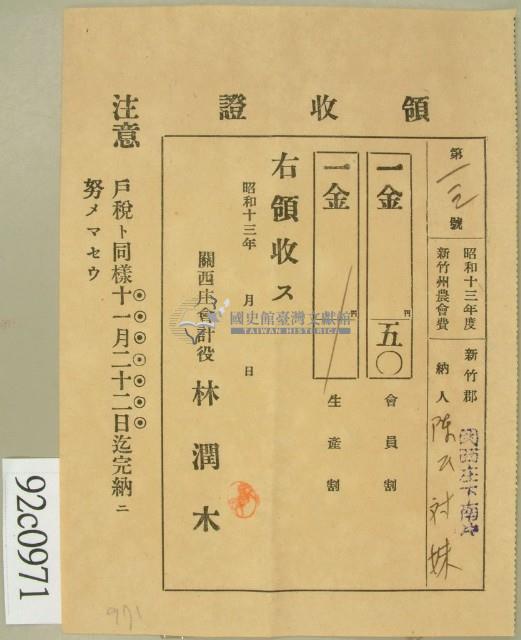 領收證
第一三號
昭和十三年度
新竹州農會費
新竹郡
納人
關西庄下南片
陳氏対妹
一金
円
五〇
會員割
一金
円
生產割
右領收ス
昭和十三年 月 日
關西庄會計役 林潤木
注意
戶稅ト同樣十一月二十二日迄完納ニ
努メマセウ
國史館臺灣文獻館
TAIWAN HISTORICA
92c0971
971